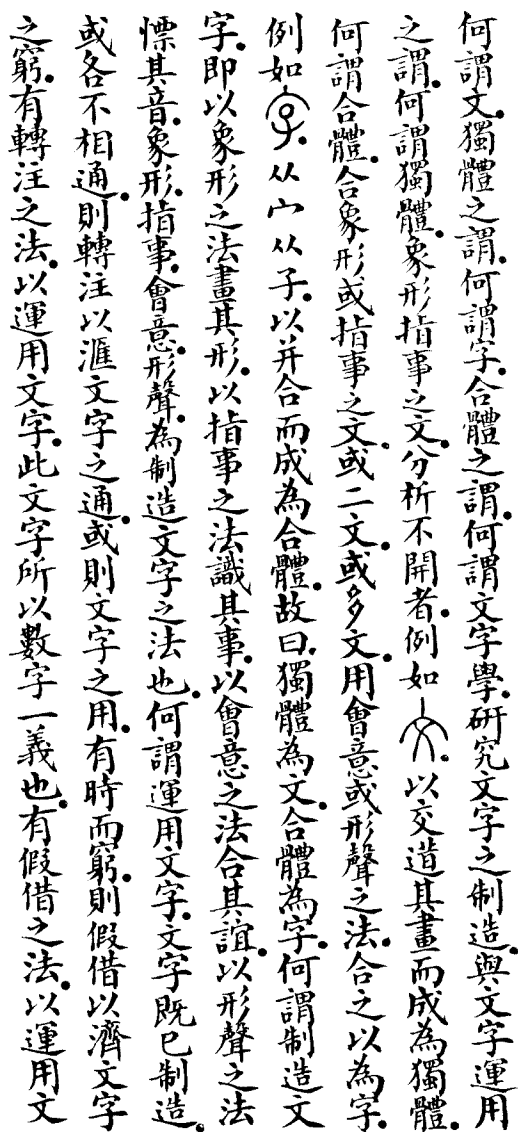 何謂文獨體之謂何謂字合體之謂何謂文字學研究文字之制造與文字運用
之謂何謂獨體象形指事之文分析不開者例如文以交遣其畫而成為獨體
何謂合體合象形或指事之文或二文或多文用會意或形聲之法合之以為字
例如字从宀从子以并合而成為合體故曰獨體為文合體為字何謂制造文
字即以象形之法畫其形以指事之法識其事以會意之法合其誼以形聲之法
慓其音象形指事會意形聲為制造文字之法也何謂運用文字文字既已制造
或各不相通則轉注以滙文字之通或則文字之用有時而窮則假借以濟文字
之窮有轉注之法以運用文字此文字所以數字一義也有假借之法以運用文